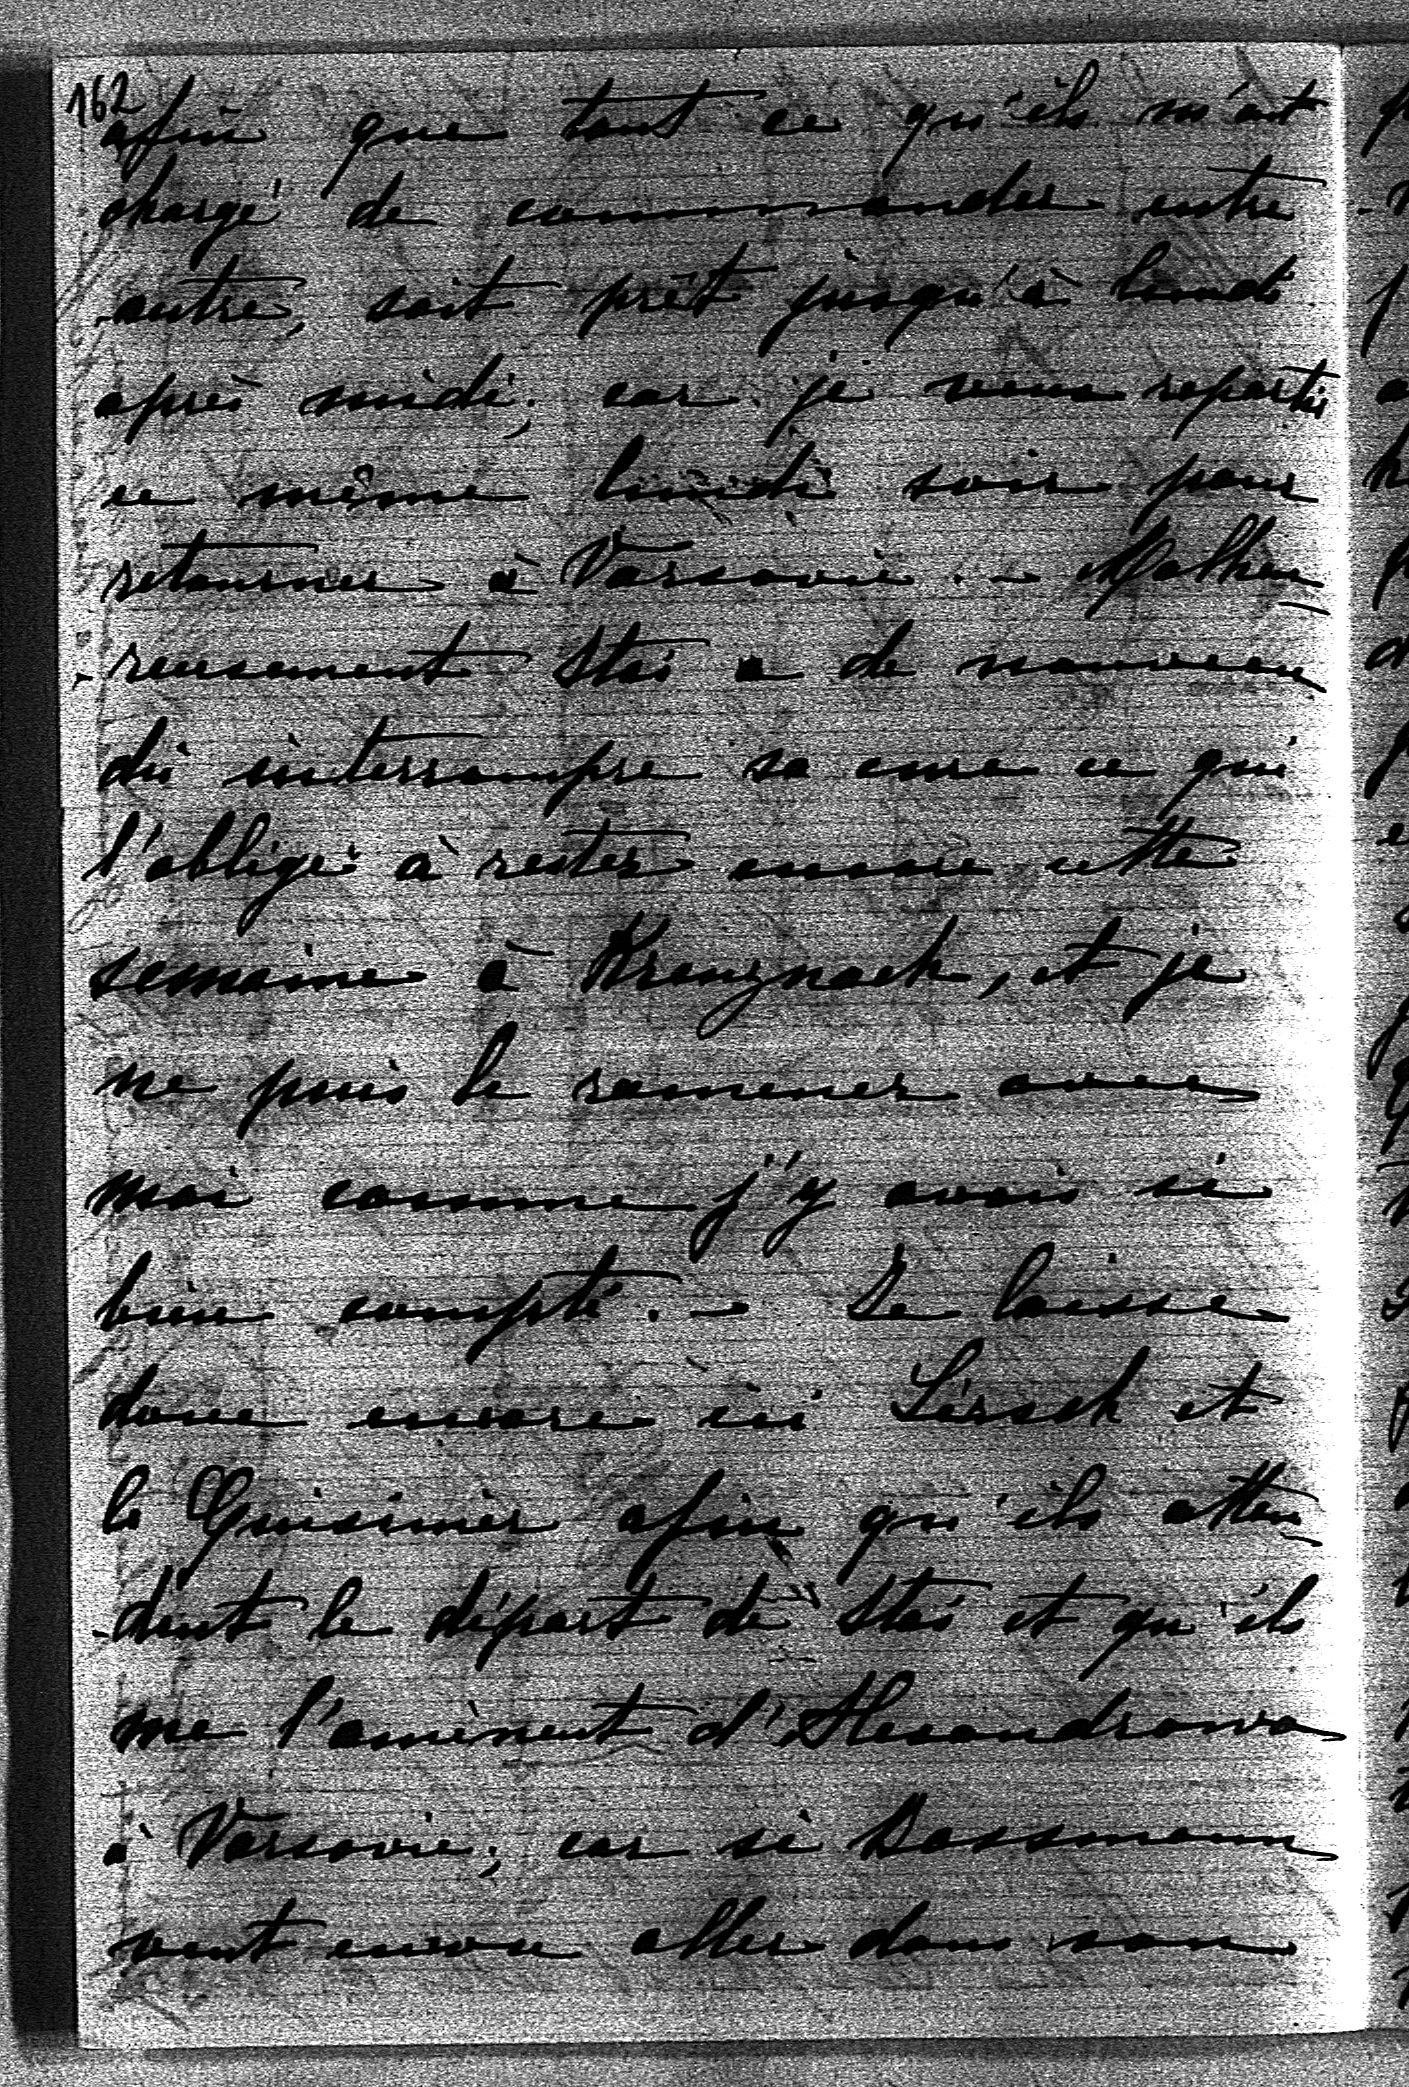 162
afin que tout ce qu'ils m'ont
chargé de commander entre
-autre, soit prêt jusqu'à lundi
après midi; car je veux repartir
ce même lundi soir pour
retourner à Varsovie. - Malheu
-reusement Staś a de nouveau
dû interrompre sa cure ce qui
l'oblige à rester encore cette
semaine à Kreuznach, et je
ne puis le ramener avec
moi comme j'y avais si
bien compté. - Je laisse
donc encore ici Lersch et
le Cuisinier afin qu'ils atten
-dent le départ de Staś et qu'ils
me l'amènent d'Alexandrowo
à Varsovie; car si Dassmann
veut encore aller dans son